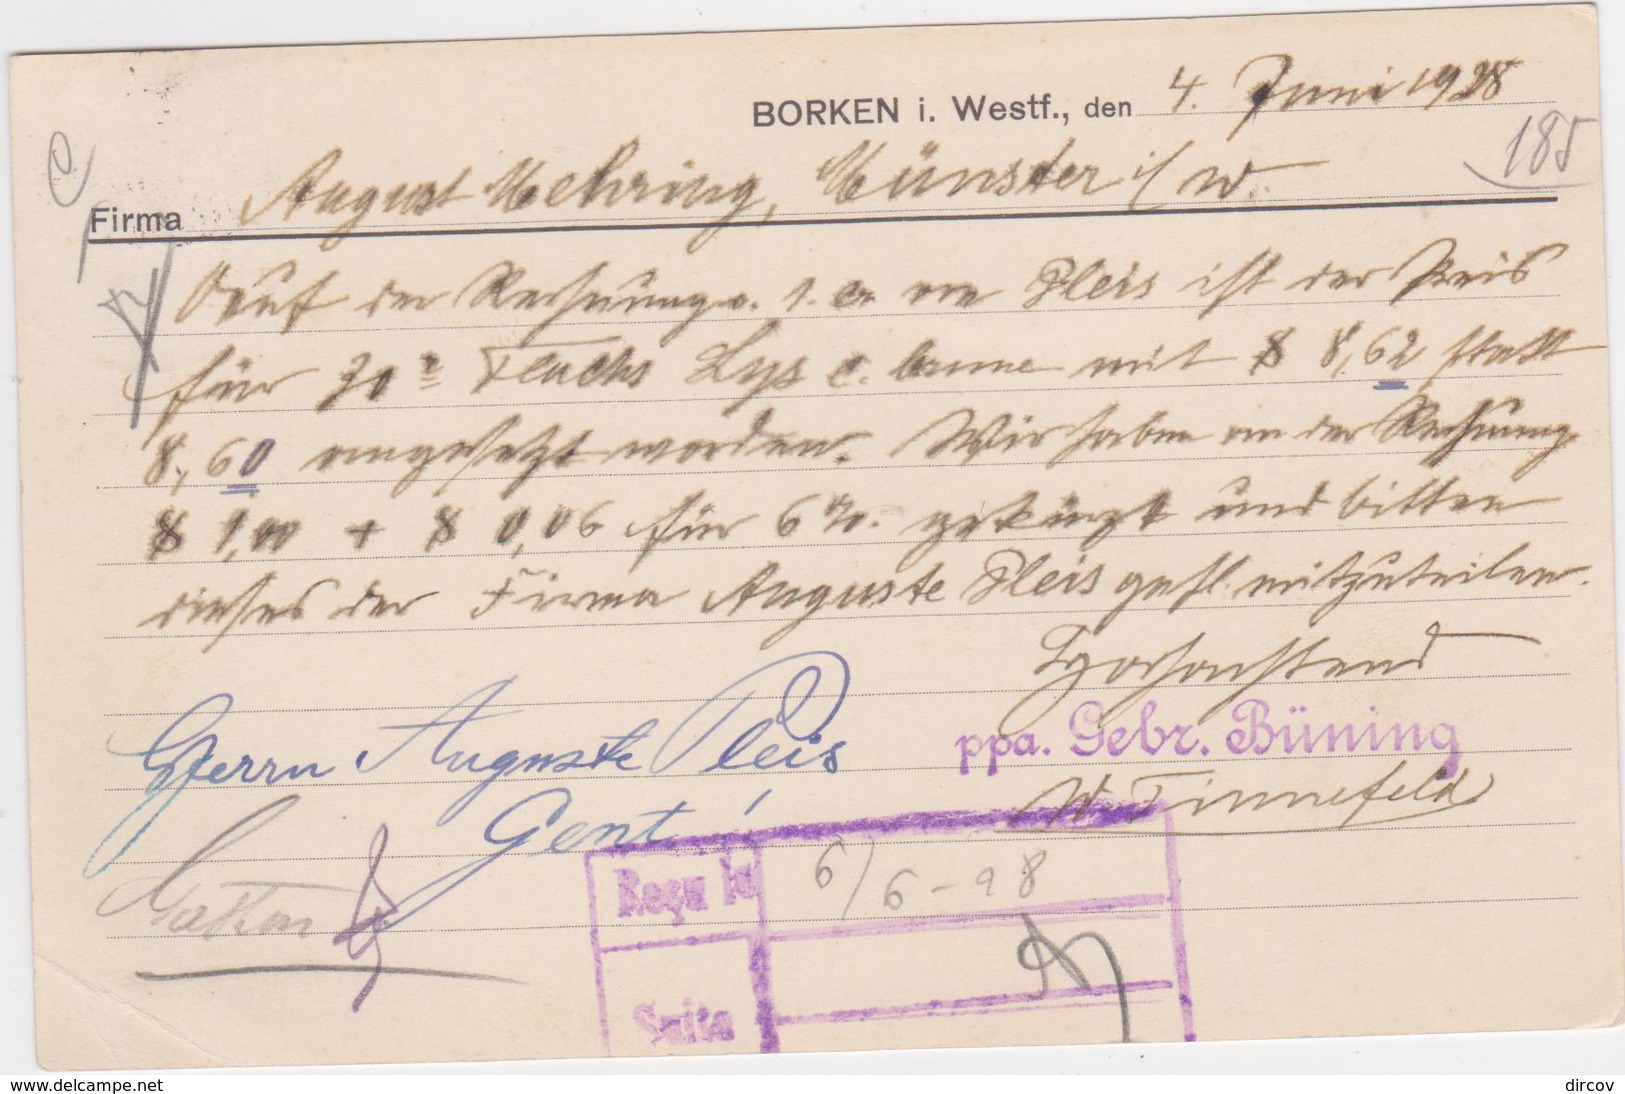 BORKEN i. Westf., den 4. Juni 1928
185
Firma August Mehring, Münster i/W.
Auf der Rechnung v. 1. cr. von Pleis ist der Preis
für 70r Teuchs Lys c. brune mit $ 8,62 statt
8,60 angesetzt worden. Wir haben an der Rechnung
$ 1,00 + $ 0,06 für 6%. gekürzt und bitten
dieses der Firma Auguste Pleis gefl. mitzuteilen.
Hochachtend
ppa. Gebr. Büning
W. Finnefeld
Herrn Auguste Pleis
Gent
Reçu le 6/6-28
Suite
www.delcampe.net
dircov